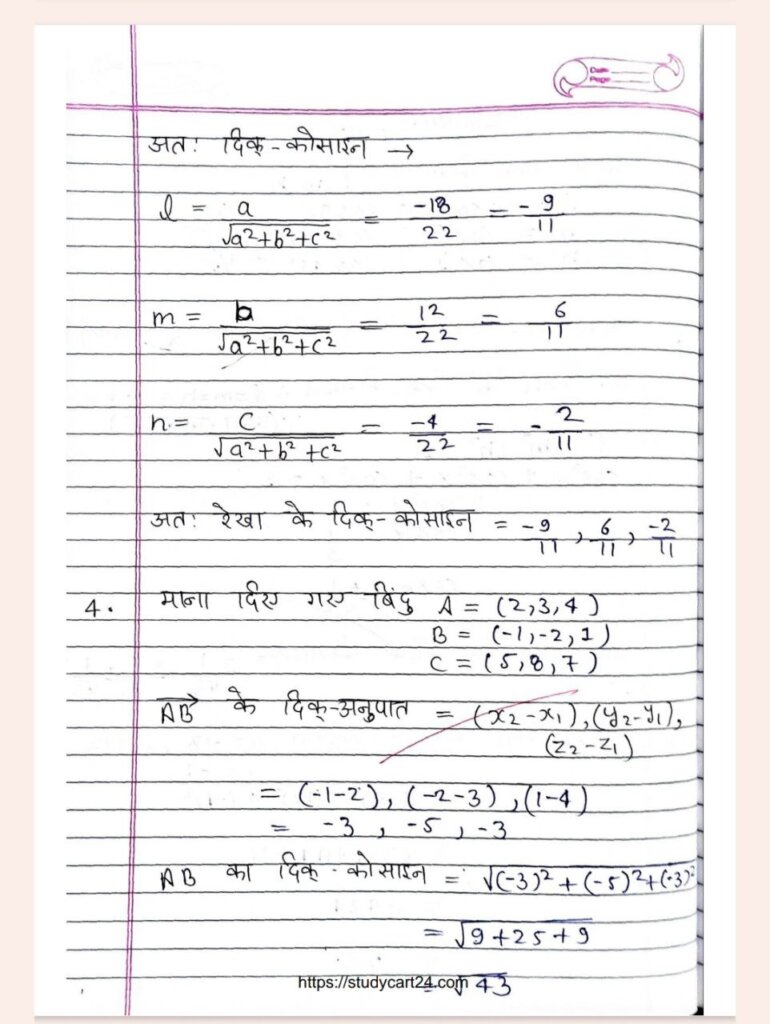 Date
Page
अतः दिक्-कोसाइन →
l = a/√a²+b²+c² = -18/22 = -9/11
m = b/√a²+b²+c² = 12/22 = 6/11
n = c/√a²+b²+c² = -4/22 = -2/11
अतः रेखा के दिक्-कोसाइन = -9/11, 6/11, -2/11
4. माना दिए गए बिंदु A = (2,3,4)
B = (-1,-2,1)
C = (5,8,7)
AB→ के दिक्-अनुपात = (x₂-x₁),(y₂-y₁),
(z₂-z₁)
= (-1-2), (-2-3), (1-4)
= -3, -5, -3
AB का दिक्-कोसाइन = √(-3)²+(-5)²+(-3)²
= √9+25+9
= √43
https://studycart24.com